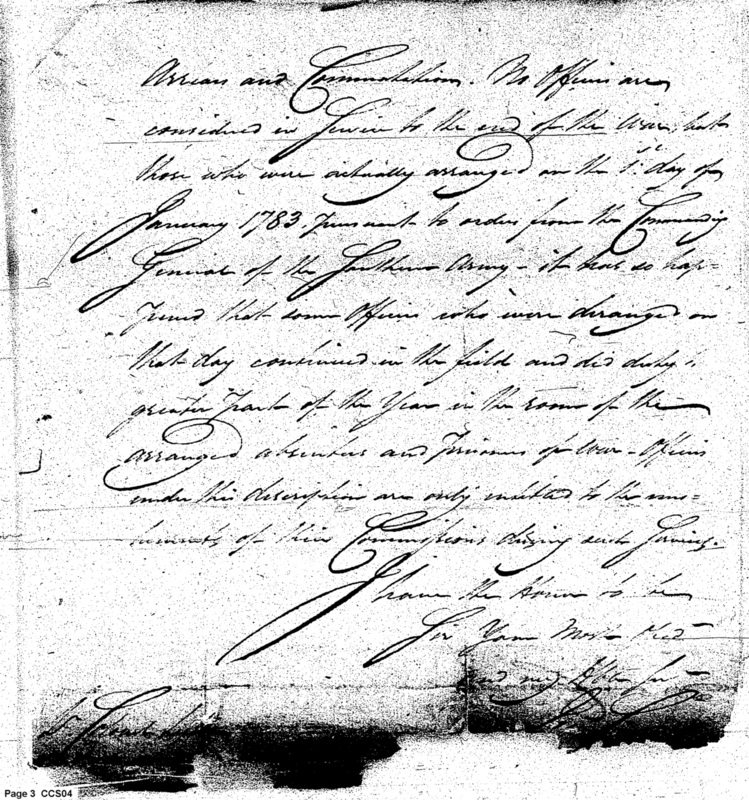 Arrears and Commutation. No Officers are
considered in Service to the end of the War, but
those who were actually arranged on the 1st. day of
January 1783. pursuant to orders from the Commandg
General of the Southern Army - it has so hap=
pened that some Officers who were deranged on
that day continued in the field and did duty
greater part of the Year in the room of the
arranged absentees and Prisoners of War - Officers
under this description are only entitled to the emo=
luments of their Commissions during such Service.
I have the Honor to be
Sir Your Most Obed
and
Page 3 CCS04